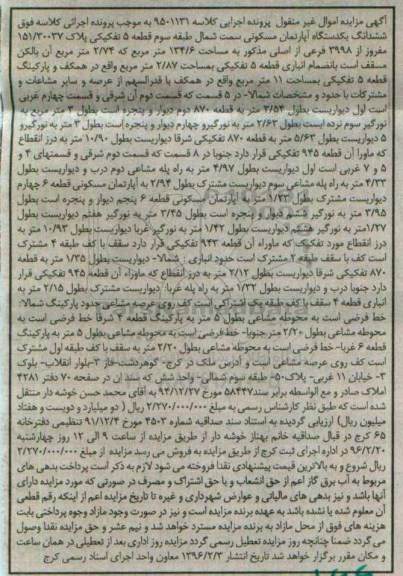 آگهی مزایده اموال غیر منقول پرونده اجرایی کلاسه ۹۵۰۱۱۳۱ به موجب پرونده اجرائی کلاسه فوق
ششدانگ یکدستگاه آپارتمان مسکونی سمت شمال طبقه سوم قطعه ۵ تفکیکی پلاک ۱۵۱/۳۰۰۳۷
مفروز از ۳۹۹۸ فرعی از اصلی مذکور به مساحت ۱۳۴/۶ متر مربع که ۲/۷۴ متر مربع آن بالکن
مسقف است بانضمام انباری قطعه ۵ تفکیکی بمساحت ۲/۸۷ متر مربع واقع در همکف و پارکینگ
قطعه ۵ تفکیکی بمساحت ۱۱ متر مربع واقع در همکف با قدرالسهم از عرصه و سایر مشاعات و
مشترکات با حدود و مشخصات شمالا- در ۵ قسمت که قسمت دوم آن شرقی و قسمت چهارم غربی
است اول دیواریست بطول ۳/۵۴ متر به قطعه ۸۷۰ دوم دیوار و پنجره است بطول ۳ متر مربع به
نورگیر سوم نرده است بطول ۲/۶۳ متر به نورگیر و چهارم دیوار و پنجره است بطول ۳ متر به نورگیر و
۵ دیواریست بطول ۵/۶۳ متر به قطعه ۸۷۰ تفکیکی شرقا دیواریست بطول ۱۰/۹۰ متر به درز انقطاع
که ماورا آن قطعه ۹۴۵ تفکیکی قرار دارد جنوبا در ۸ قسمت که قسمت دوم شرقی و قسمتهای ۳ و
۵ و ۷ غربی است اول دیواریست بطول ۴/۹۷ متر به راه پله مشاعی دوم درب و دیواریست بطول
۴/۳۳ متر به راه پله مشاعی سوم دیواریست مشترک بطول ۲/۹۴ به آپارتمان مسکونی قطعه ۶ چهارم
دیواریست مشترک بطول ۱/۳۳ متر به آپارتمان مسکونی قطعه ۶ پنجم دیوار و پنجره است بطول
۳/۹۵ متر به نورگیر ششم دیوار و پنجره است بطول ۳/۴۵ متر به نورگیر هفتم دیواریست بطول
۱/۳۷متر به نورگیر هشتم دیواریست بطول ۱/۴۲ متر به نورگیر غربا دیواریست بطول ۱۰/۹۳ متر به
درز انقطاع مورد تفکیک که ماوراء آن قطعه ۹۴۳ تفکیکی قرار دارد سقف با کف طبقه ۴ مشترک
است کف با سقف طبقه ۲ مشترک است حدود انباری : شمالا- دیواریست بطول ۱/۳۵ متر به قطعه
۸۷۰ تفکیکی شرقا دیواریست بطول ۲/۱۲ متر به درز انقطاع که ماوراء آن قطعه ۹۴۵ تفکیکی قرار
دارد جنوبا درب و دیواریست بطول ۱/۳۳ متر به راه پله غربا: دیواریست مشترک بطول ۲/۱۵ متر به
انباری قطعه ۴ سقف با کف طبقه یک اشتراکی است کف روی عرصه مشاعی حدود پارکینگ شمالا:
خط فرضی است به محوطه مشاعی بطول ۵ متر به پارکینگ قطعه ۴ شرقا خط فرضی است به
محوطه مشاعی بطول ۲/۲۰ متر جنوبا- خط فرضی است به محوطه مشاعی بطول ۵ متر به پارکینگ
قطعه ۶ غربا- خط فرضی است به محوطه مشاعی بطول ۲/۲۰ متر به سقف با کف طبقه اول مشترک
است کف روی عرصه مشاعی است و آدرس ملک در کرج- گوهردشت-فاز ۳-بلوار انقلاب- بلوک
۳- خیابان ۱۱ غربی- پلاک۵۰- طبقه سوم شمالی- واحد شش که سند آن در صفحه ۷۰ دفتر ۴۲۸۱
املاک صادر و مع الواسطه برابر سند۵۸۴۴۷ مورخ ۹۴/۱۲/۲۷ به آقای محمد حسن خوشه دار منتقل
شده است که طبق نظر کارشناس رسمی به مبلغ ۲/۲۷۰/۰۰۰/۰۰۰ ریال ( دو میلیارد و دویست و هفتاد
میلیون ریال) ارزیابی گردیده به استناد سند صداقیه شماره ۴۵۰۳ مورخ ۹۱/۱۲/۴ تنظیمی دفترخانه
۶۵ کرج در قبال صداقیه خانم بهناز خوشه دار از طریق مزایده از ساعت ۹ الی ۱۲ روز چهارشنبه
۹۶/۲/۲۰ در اداره اجرای ثبت کرج از طریق مزایده به فروش می رسد مزایده از مبلغ ۲/۲۷۰/۰۰۰/۰۰۰
ریال شروع و به بالاترین قیمت پیشنهادی نقدا فروخته می شود لازم به ذکر است پرداخت بدهی های
مربوط به آب برق گاز اعم از حق انشعاب و یا حق اشتراک و مصرف در صورتی که مورد مزایده دارای
آنها باشد و نیز بدهی های مالیاتی و عوارض شهرداری و غیره تا تاریخ مزایده اعم از اینکه رقم قطعی
آن معلوم شده یا نشده باشد به عهده برنده مزایده است و نیز در صورت وجود مازاد وجوه پرداختی بابت
هزینه های فوق از محل مازاد به برنده مزایده مسترد خواهد شد و نیم عشر و حق مزایده نقدا وصول
می گردد ضمنا چنانچه روز مزایده تعطیل رسمی گردد مزایده روز اداری بعد از تعطیلی در همان ساعت
و مکان مقرر برگزار خواهد شد تاریخ انتشار ۱۳۹۶/۲/۳ معاون واحد اجرای اسناد رسمی کرج